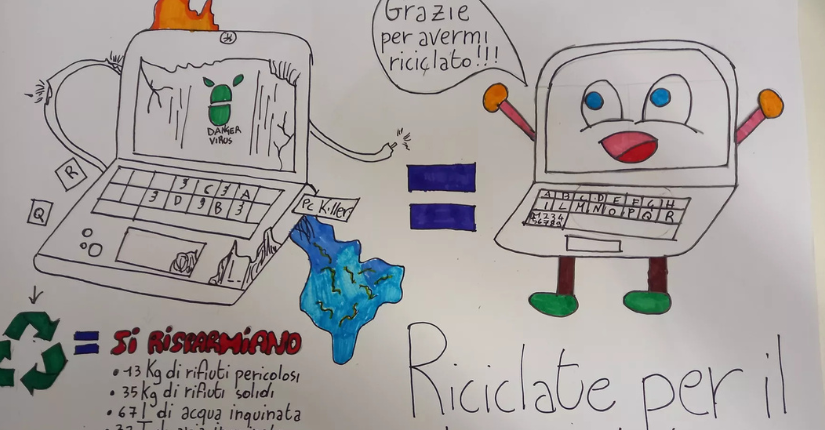 Grazie
per avermi
riciclato!!!
DANGER
VIRUS
R
Q
3 C 3 A
3 D 9 B 3
Pc Killer
A B C D E F G H
I L M N O P Q R
1234
56789
= SI RISPARMIANO
• 13 Kg di rifiuti pericolosi
• 35 kg di rifiuti solidi
• 67 l di acqua inquinata
Riciclate per il